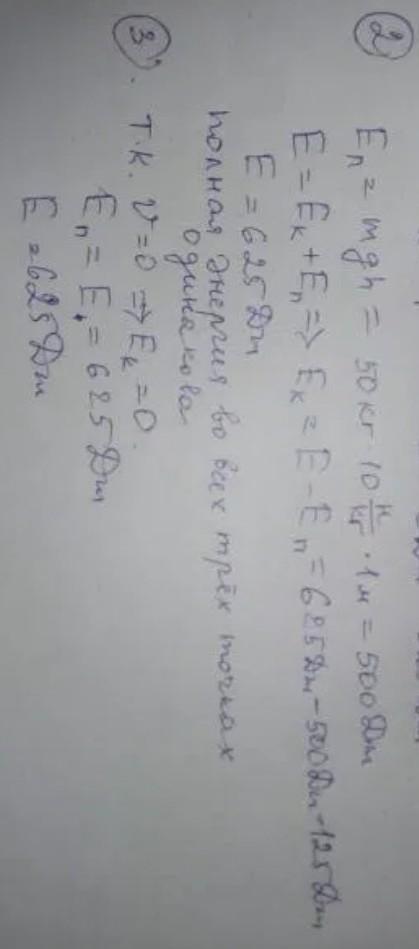 2
Eп = mgh = 50кг · 10 н/кг · 1м = 500Дж
E = Eк + Eп => Eк = E - Eп = 625Дж - 500Дж = 125Дж
E = 625Дж
полная энергия во всех трёх точках
одинакова
3. т.к. v=0 => Eк = 0.
Eп = E = 625 Дж
E = 625Дж